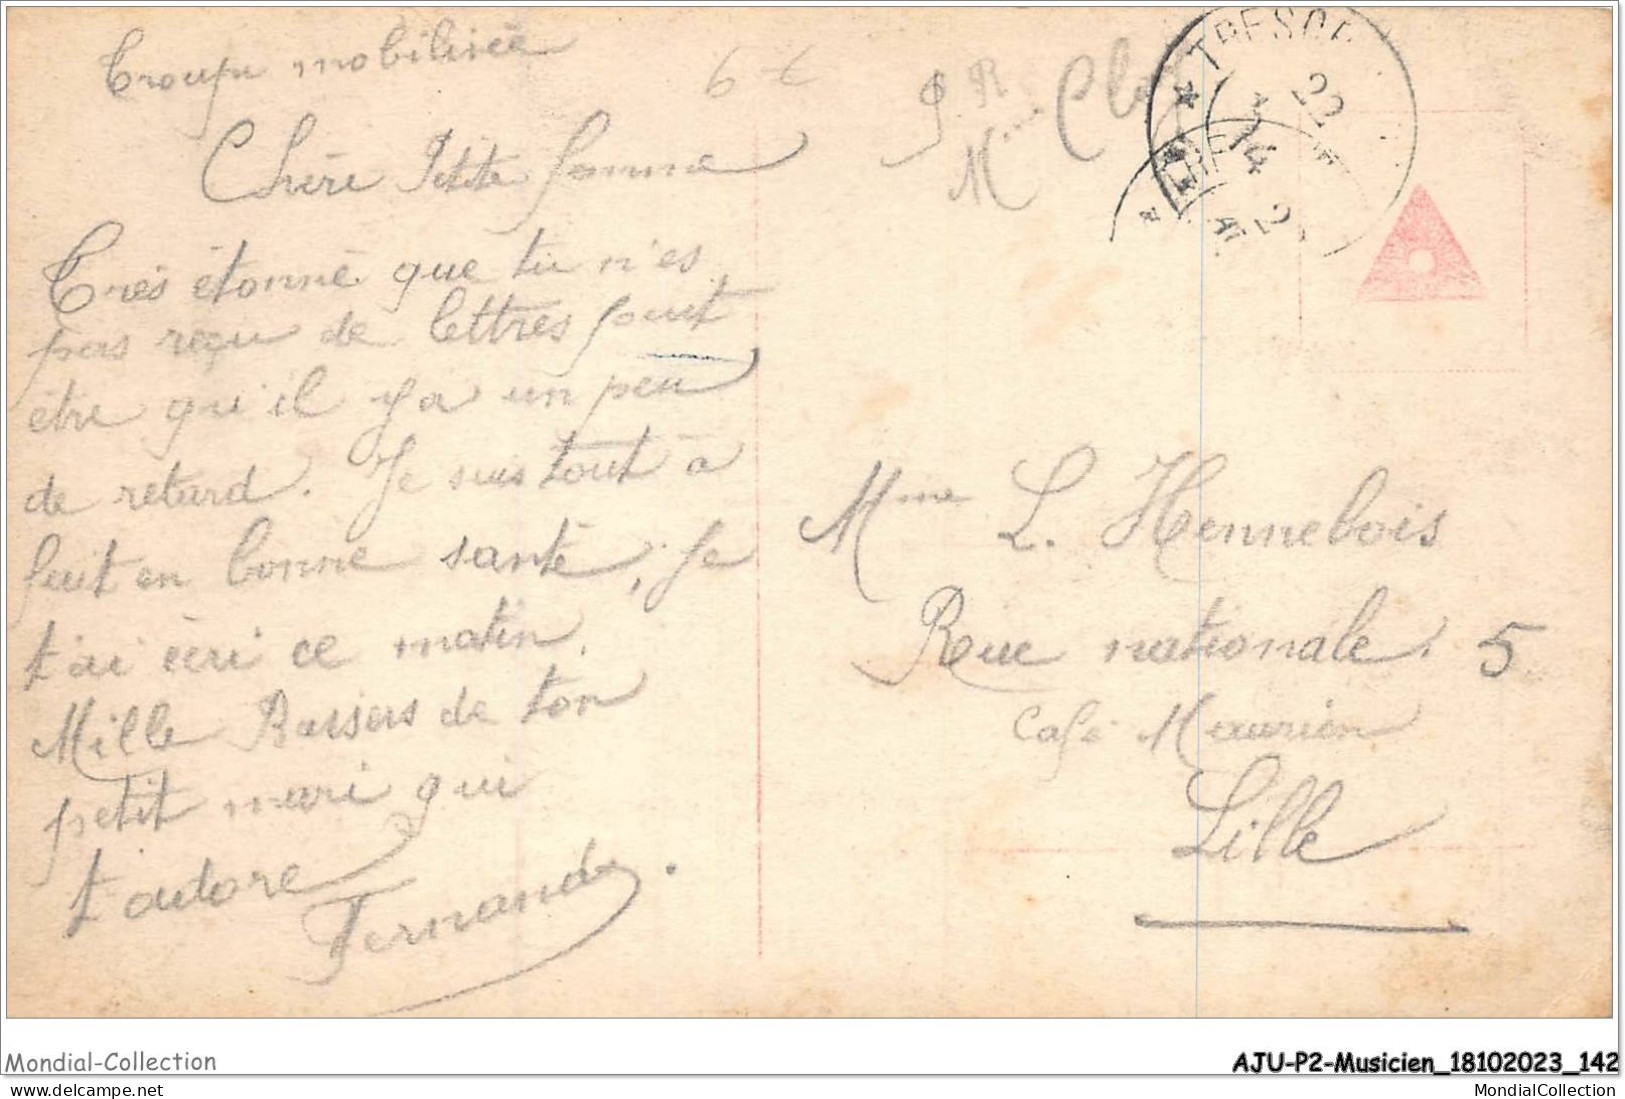 Troupe mobilisée
Chère Petite femme
Très étonné que tu n'es
pas reçu de lettres peut
être qu'il y a un peu
de retard. Je suis tout à
fait en bonne santé, je
t'ai écri ce matin.
Mille Baisers de ton
petit mari qui
t'adore
Fernand.
6 €
TRESOR
22
14
Mme L. Hennebois
Rue nationale. 5
Café Maurien
Lille
Mondial-Collection
AJU-P2-Musicien_18102023_142
www.delcampe.net
MondialCollection